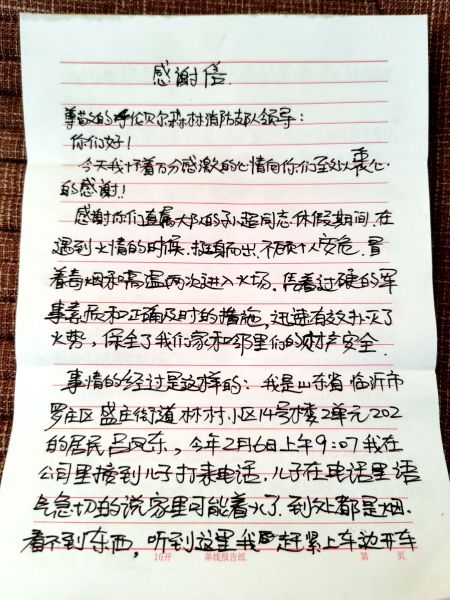 感谢信.
尊敬的呼伦贝尔森林消防部队领导:
你们好!
今天我怀着万分感激的心情向你们至以衷心
的感谢!!
感谢你们直属大队的孙超同志.休假期间.在
遇到火情的时候.挺身而出.不顾个人安危.冒
着奇烟和高温两次进入火场.凭着过硬的军
事素质和正确及时的措施,迅速有效扑灭了
火势,保全了我们家和邻里们的财产安全.
事情的经过是这样的:我是山东省临沂市
罗庄区盛庄街道林村小区14号楼2单元202
的居民吕凤东,今年2月6日上午9:07我在
公司里接到儿子打来电话.儿子在电话里语
气急切的说家里可能着火了.到处都是烟.
看不到东西,听到这里我赶紧上车边开车
16开 单线报告纸 第 页